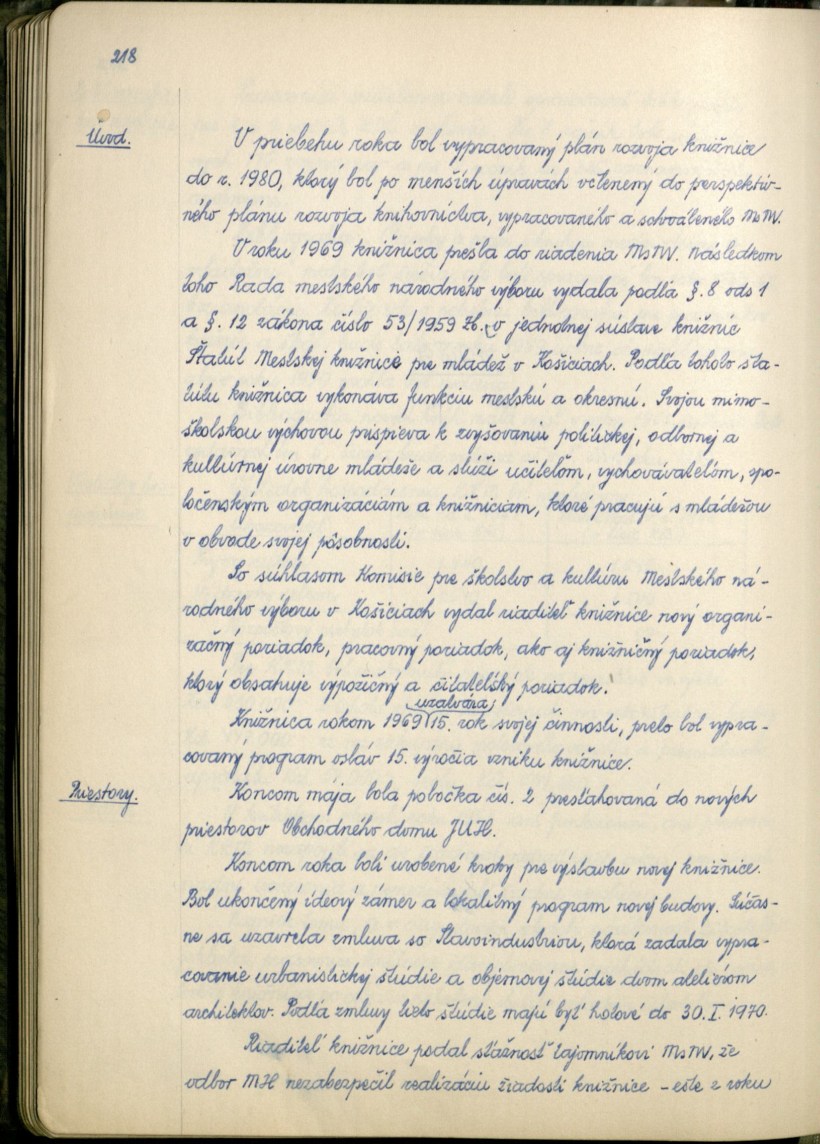 218
Úvod.
V priebehu roka bol vypracovaný plán rozvoja knižnice
do r. 1980, ktorý bol po menších úpravách včlenený do perspektív-
ného plánu rozvoja knihovníctva, vypracovaného a schváleného MsNV.
V roku 1969 knižnica prešla do riadenia MsNV. Následkom
toho Rada mestského národného výboru vydala podľa §. 8 ods 1
a §. 12 zákona číslo 53/1959 Zb. v jednotnej sústave knižníc
Štatút Mestskej knižnice pre mládež v Košiciach. Podľa tohoto šta-
tútu knižnica vykonáva funkciu mestskú a okresnú. Svojou mimo-
školskou výchovou prispieva k zvyšovaniu politickej, odbornej a
kultúrnej úrovne mládeže a slúži učiteľom, vychovávateľom, spo-
ločenským organizáciám a knižniciam, ktoré pracujú s mládežou
v obvode svojej pôsobnosti.
So súhlasom Komisie pre školstvo a kultúru Mestského ná-
rodného výboru v Košiciach vydal riaditeľ knižnice nový organi-
začný poriadok, pracovný poriadok, ako aj knižničný poriadok,
ktorý obsahuje výpožičný a čitateľský poriadok.
uzatvára
Knižnica rokom 1969 15. rok svojej činnosti, preto bol vypra-
covaný program osláv 15. výročia vzniku knižnice.
Priestory.
Koncom mája bola pobočka čís. 2 presťahovaná do nových
priestorov Obchodného domu JUH.
Koncom roka boli urobené kroky pre výstavbu novej knižnice.
Bol ukončený ideový zámer a lokalitný program novej budovy. Súčas-
ne sa uzavrela zmluva so Stavoindustriou, ktorá zadala vypra-
covanie urbanistickej štúdie a objemovej štúdie dvom ateliérom
architektov. Podľa zmluvy tieto štúdie majú byť hotové do 30. I. 1970.
Riaditeľ knižnice podal sťažnosť tajomníkovi MsNV, že
odbor MH nezabezpečil realizáciu žiadosti knižnice - ešte z roku